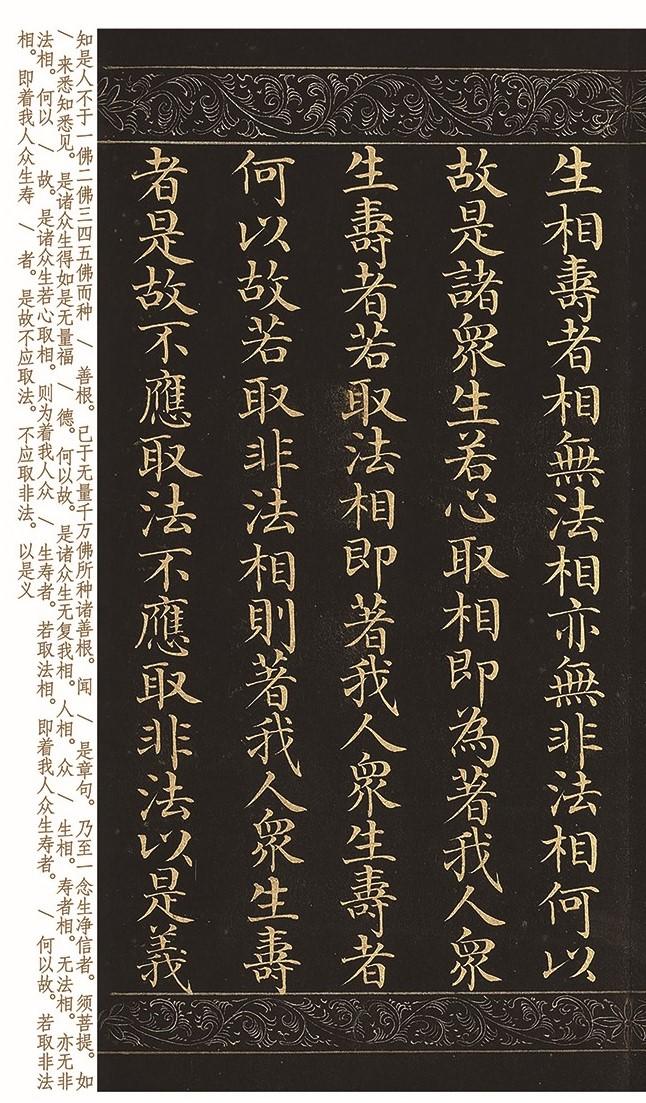 生相壽者相無法相亦無非法相何以
故是諸衆生若心取相即為著我人衆
生壽者若取法相即著我人衆生壽者
何以故若取非法相則著我人衆生壽
者是故不應取法不應取非法以是義
知是人不于一佛二佛三四五佛而种 / 善根。已于无量千万佛所种诸善根。闻 / 是章句。乃至一念生净信者。须菩提。如
/ 来悉知悉见。是诸众生得如是无量福 / 德。何以故。是诸众生无复我相。人相。众 / 生相。寿者相。无法相。亦无非
法相。何以 / 故。是诸众生若心取相。则为着我人众 / 生寿者。若取法相。即着我人众生寿者。 / 何以故。若取非法
相。即着我人众生寿 / 者。是故不应取法。不应取非法。以是义